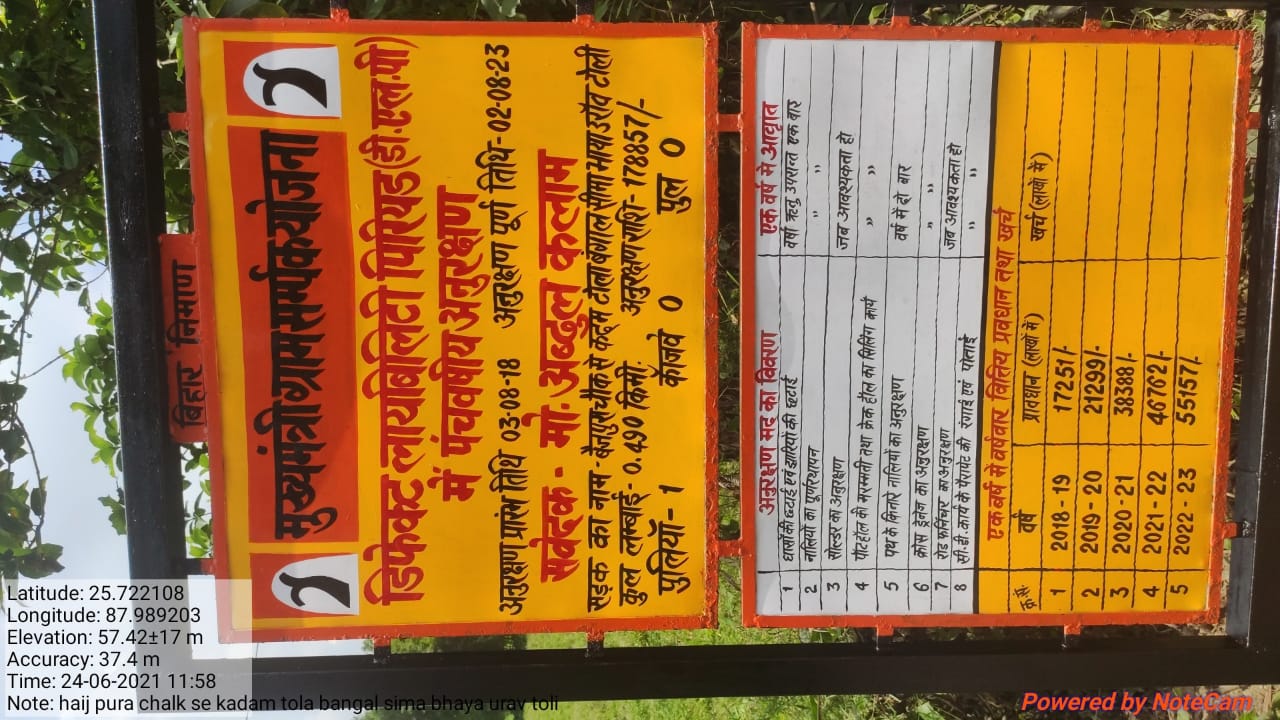 बिहार निर्माण
मुख्यमंत्री ग्राम सर्म्पक योजना
डिफेक्ट लायबिलिटी पिरियड (डी.एल.पी)
में पंचवर्षीय अनुरक्षण
अनुरक्षण प्रारंभ तिथि 03-08-18 अनुरक्षण पूर्ण तिथि- 02-08-23
सवेदक - मो. अब्दुल कलाम
सड़क का नाम - बैजुपुर चौक से कद्दम टोला बंगाल सीमा भाया उराँव टोली
कुल लम्बाई - 0.490 किमी. अनुरक्षण राशि - 178857/-
पुलियाँ - 1 कॉजवे 0 पुल 0
अनुरक्षण मद का विवरण एक वर्ष में आवृात
1 घासों की छटाई एवं झारियों की छटाई वर्षा ऋतु उपरान्त एक बार
2 नालियों का पूर्णस्थापन " "
3 सोल्डर का अनुरक्षण जब आवश्यकता हो
4 पौटहॉल की मरम्मती तथा क्रेक हील का सिलिंग कार्य " "
5 पथ के किनारे नालियों का अनुरक्षण वर्ष में दो बार
6 क्रॉस ड्रेनेज का अनुरक्षण " "
7 रोड फर्निचर का अनुरक्षण जब आवश्यकता हो
8 सी.डी. कार्य के पैरापेट की रंगाई एवं पोताई " "
एक वर्ष से वर्षवार वित्तिय प्रवधान तथा खर्च
क्र.सं. वर्ष प्रावधान (लाखों में) खर्च (लाखों में)
1 2018 - 19 17251/-
2 2019 - 20 21299/-
3 2020 - 21 38388/-
4 2021 - 22 46762/-
5 2022 - 23 55157/-
Latitude: 25.722108
Longitude: 87.989203
Elevation: 57.42±17 m
Accuracy: 37.4 m
Time: 24-06-2021 11:58
Note: haij pura chalk se kadam tola bangal sima bhaya urav toli
Powered by NoteCam